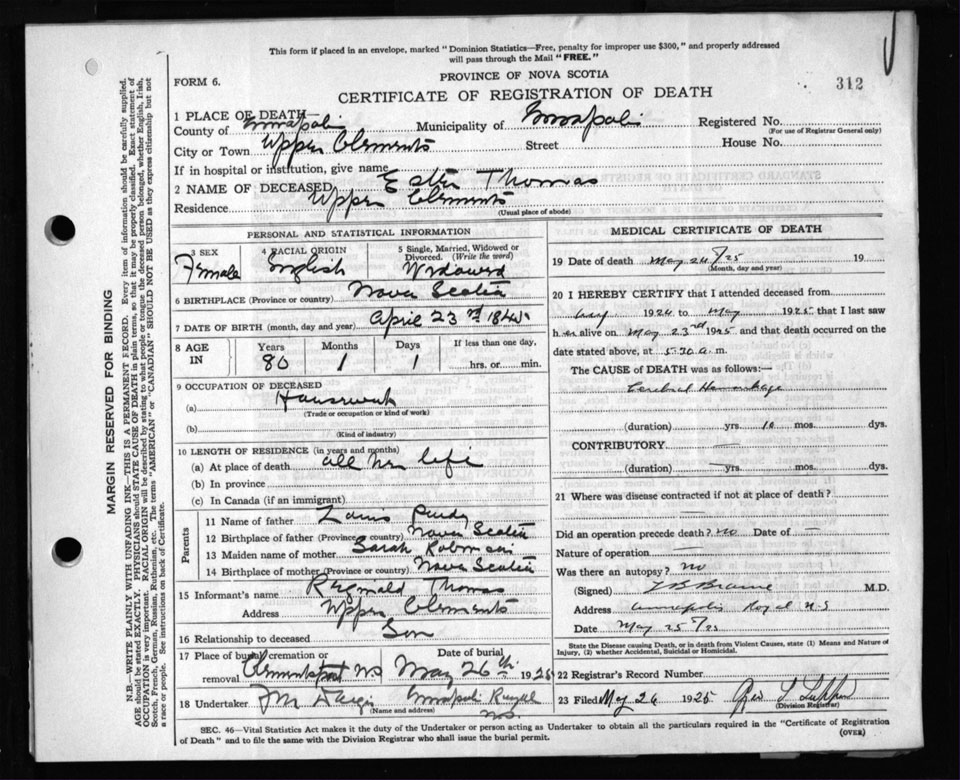 This form if placed in an envelope, marked "Dominion Statistics—Free, penalty for improper use $300," and properly addressed
will pass through the Mail "FREE."
FORM 6.
PROVINCE OF NOVA SCOTIA
312
CERTIFICATE OF REGISTRATION OF DEATH
1 PLACE OF DEATH—
County of Annapolis Municipality of Annapolis Registered No.
(For use of Registrar General only)
City or Town Upper Clements Street House No.
If in hospital or institution, give name
2 NAME OF DECEASED Ester Thomas
Residence Upper Clements
(Usual place of abode)
PERSONAL AND STATISTICAL INFORMATION
3 SEX Female
4 RACIAL ORIGIN English
5 Single, Married, Widowed or Divorced. (Write the word) Widowed
6 BIRTHPLACE (Province or country) Nova Scotia
7 DATE OF BIRTH (month, day and year) April 23rd 1845
8 AGE IN Years 80 Months 1 Days 1 If less than one day, hrs. or min.
9 OCCUPATION OF DECEASED
(a) Housework
(Trade or occupation or kind of work)
(b)
(Kind of industry)
10 LENGTH OF RESIDENCE (in years and months)
(a) At place of death all her life
(b) In province
(c) In Canada (if an immigrant)
Parents
11 Name of father Purdy
12 Birthplace of father (Province or country) Nova Scotia
13 Maiden name of mother Sarah
14 Birthplace of mother (Province or country) Nova Scotia
15 Informant's name Reginald Thomas
Address Upper Clements
16 Relationship to deceased Son
17 Place of burial, cremation or removal Clementsport N.S. Date of burial May 26th 1925
18 Undertaker Annapolis Royal N.S.
(Name and address)
MEDICAL CERTIFICATE OF DEATH
19 Date of death May 24/25 19
(Month, day and year)
20 I HEREBY CERTIFY that I attended deceased from
1924 to May 1925 that I last saw
her alive on May 23rd 1925 and that death occurred on
date stated above, at 5.30 a.m.
The CAUSE of DEATH was as follows:—
Cerebral Hemorrhage
(duration) yrs. 10 mos. dys.
CONTRIBUTORY —
(duration) — yrs. mos. dys.
21 Where was disease contracted if not at place of death?
—
Did an operation precede death? no Date of —
Nature of operation —
Was there an autopsy? no
(Signed) M.D.
Address Annapolis Royal N.S
Date May 25/25
State the Disease causing Death, or in death from Violent Causes, state (1) Means and Nature of
Injury, (2) whether Accidental, Suicidal or Homicidal.
22 Registrar's Record Number
23 Filed May 26 1925 Geo L
(Division Registrar)
SEC. 46—Vital Statistics Act makes it the duty of the Undertaker or person acting as Undertaker to obtain all the particulars required in the "Certificate of Registration
of Death" and to file the same with the Division Registrar who shall issue the burial permit.
(OVER)
MARGIN RESERVED FOR BINDING
N.B.—WRITE PLAINLY WITH UNFADING INK—THIS IS A PERMANENT RECORD. Every item of information should be carefully supplied.
AGE should be stated EXACTLY. PHYSICIANS should STATE CAUSE OF DEATH in plain terms, so that it may be properly classified. Exact statement of
OCCUPATION is very important. RACIAL ORIGIN will be described by stating to what people or tongue the deceased person belonged, whether English, Irish,
Scotch, French, German, Russian, Ruthenian, etc. The terms "AMERICAN" or "CANADIAN" SHOULD NOT BE USED as they express citizenship but not
a race or people. See instructions on back of Certificate.